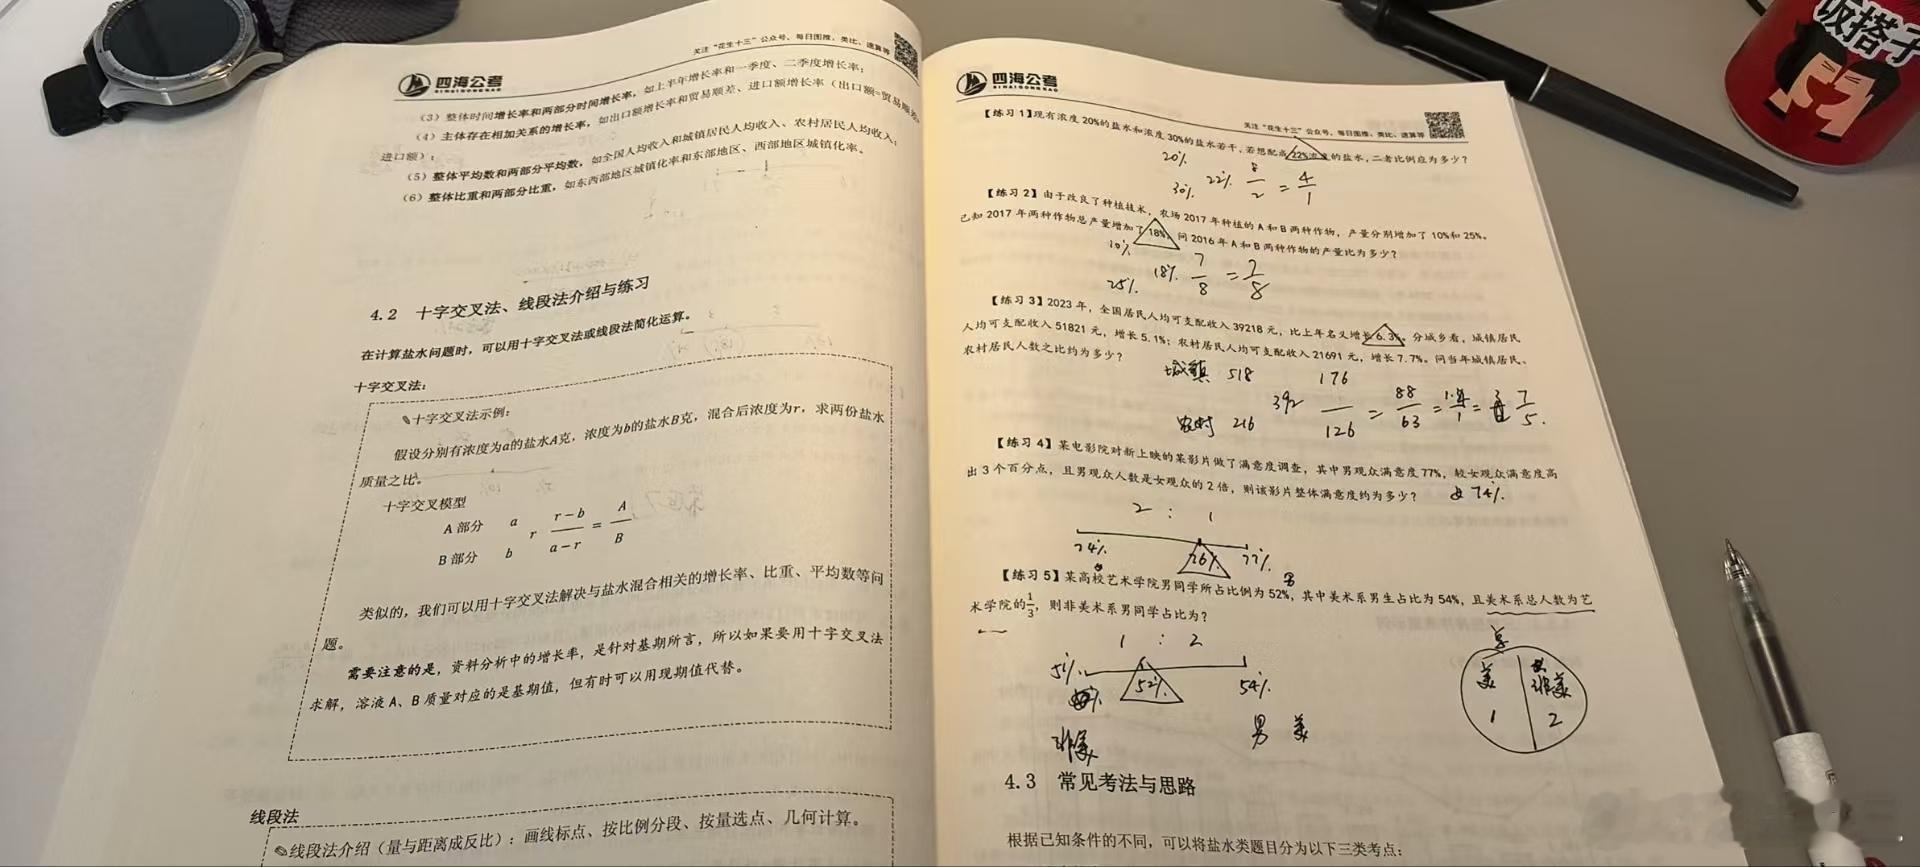 四海公考
SIHAIGONGKAO
关注“花生十三”公众号,每日图推、类比、速算等
(3)整体时间增长率和两部分时间增长率,如上半年增长率和一季度、二季度增长率;
(4)主体存在相加关系的增长率,如出口额增长率和贸易顺差、进口额增长率(出口额=贸易顺差+
进口额);
(5)整体平均数和两部分平均数,如全国人均收入和城镇居民人均收入、农村居民人均收入;
(6)整体比重和两部分比重,如东西部地区城镇化率和东部地区、西部地区城镇化率。
4.2 十字交叉法、线段法介绍与练习
在计算盐水问题时,可以用十字交叉法或线段法简化运算。
十字交叉法:
十字交叉法示例:
假设分别有浓度为a的盐水A克,浓度为b的盐水B克,混合后浓度为r,求两份盐水
质量之比。
十字交叉模型
A部分 a r-b A
r = 
B部分 b a-r B
类似的,我们可以用十字交叉法解决与盐水混合相关的增长率、比重、平均数等问
题。
需要注意的是,资料分析中的增长率,是针对基期所言,所以如果要用十字交叉法
求解,溶液A、B质量对应的是基期值,但有时可以用现期值代替。
线段法
线段法介绍(量与距离成反比):画线标点、按比例分段、按量选点、几何计算。
四海公考
SIHAIGONGKAO
关注“花生十三”公众号,每日图推、类比、速算等
【练习1】现有浓度20%的盐水和浓度30%的盐水若干,若想配高22%浓度的盐水,二者比例应为多少?
20% 8 4
22% =
30% 2 1
【练习2】由于改良了种植技术,农场2017年种植的A和B两种作物,产量分别增加了10%和25%。
已知2017年两种作物总产量增加了18%,问2016年A和B两种作物的产量比为多少?
10% 7 7
18% =
25% 8 8
【练习3】2023年,全国居民人均可支配收入39218元,比上年名义增长6.3%。分城乡看,城镇居民
人均可支配收入51821元,增长5.1%;农村居民人均可支配收入21691元,增长7.7%。问当年城镇居民、
农村居民人数之比约为多少?
城镇 518 176 88 1.4 7
392 = = =
农村 216 126 63 1 5.
【练习4】某电影院对新上映的某影片做了满意度调查,其中男观众满意度77%,较女观众满意度高
出3个百分点,且男观众人数是女观众的2倍,则该影片整体满意度约为多少?
女74%.
2 : 1
74% 76% 77%
【练习5】某高校艺术学院男同学所占比例为52%,其中美术系男生占比为54%,且美术系总人数为艺
男
术学院的1/3,则非美术系男同学占比为?
1 : 2
51% 52% 54%
非美 男 美
美 非美
1 2
4.3 常见考法与思路
根据已知条件的不同,可以将盐水类题目分为以下三类考点:
饭搭子